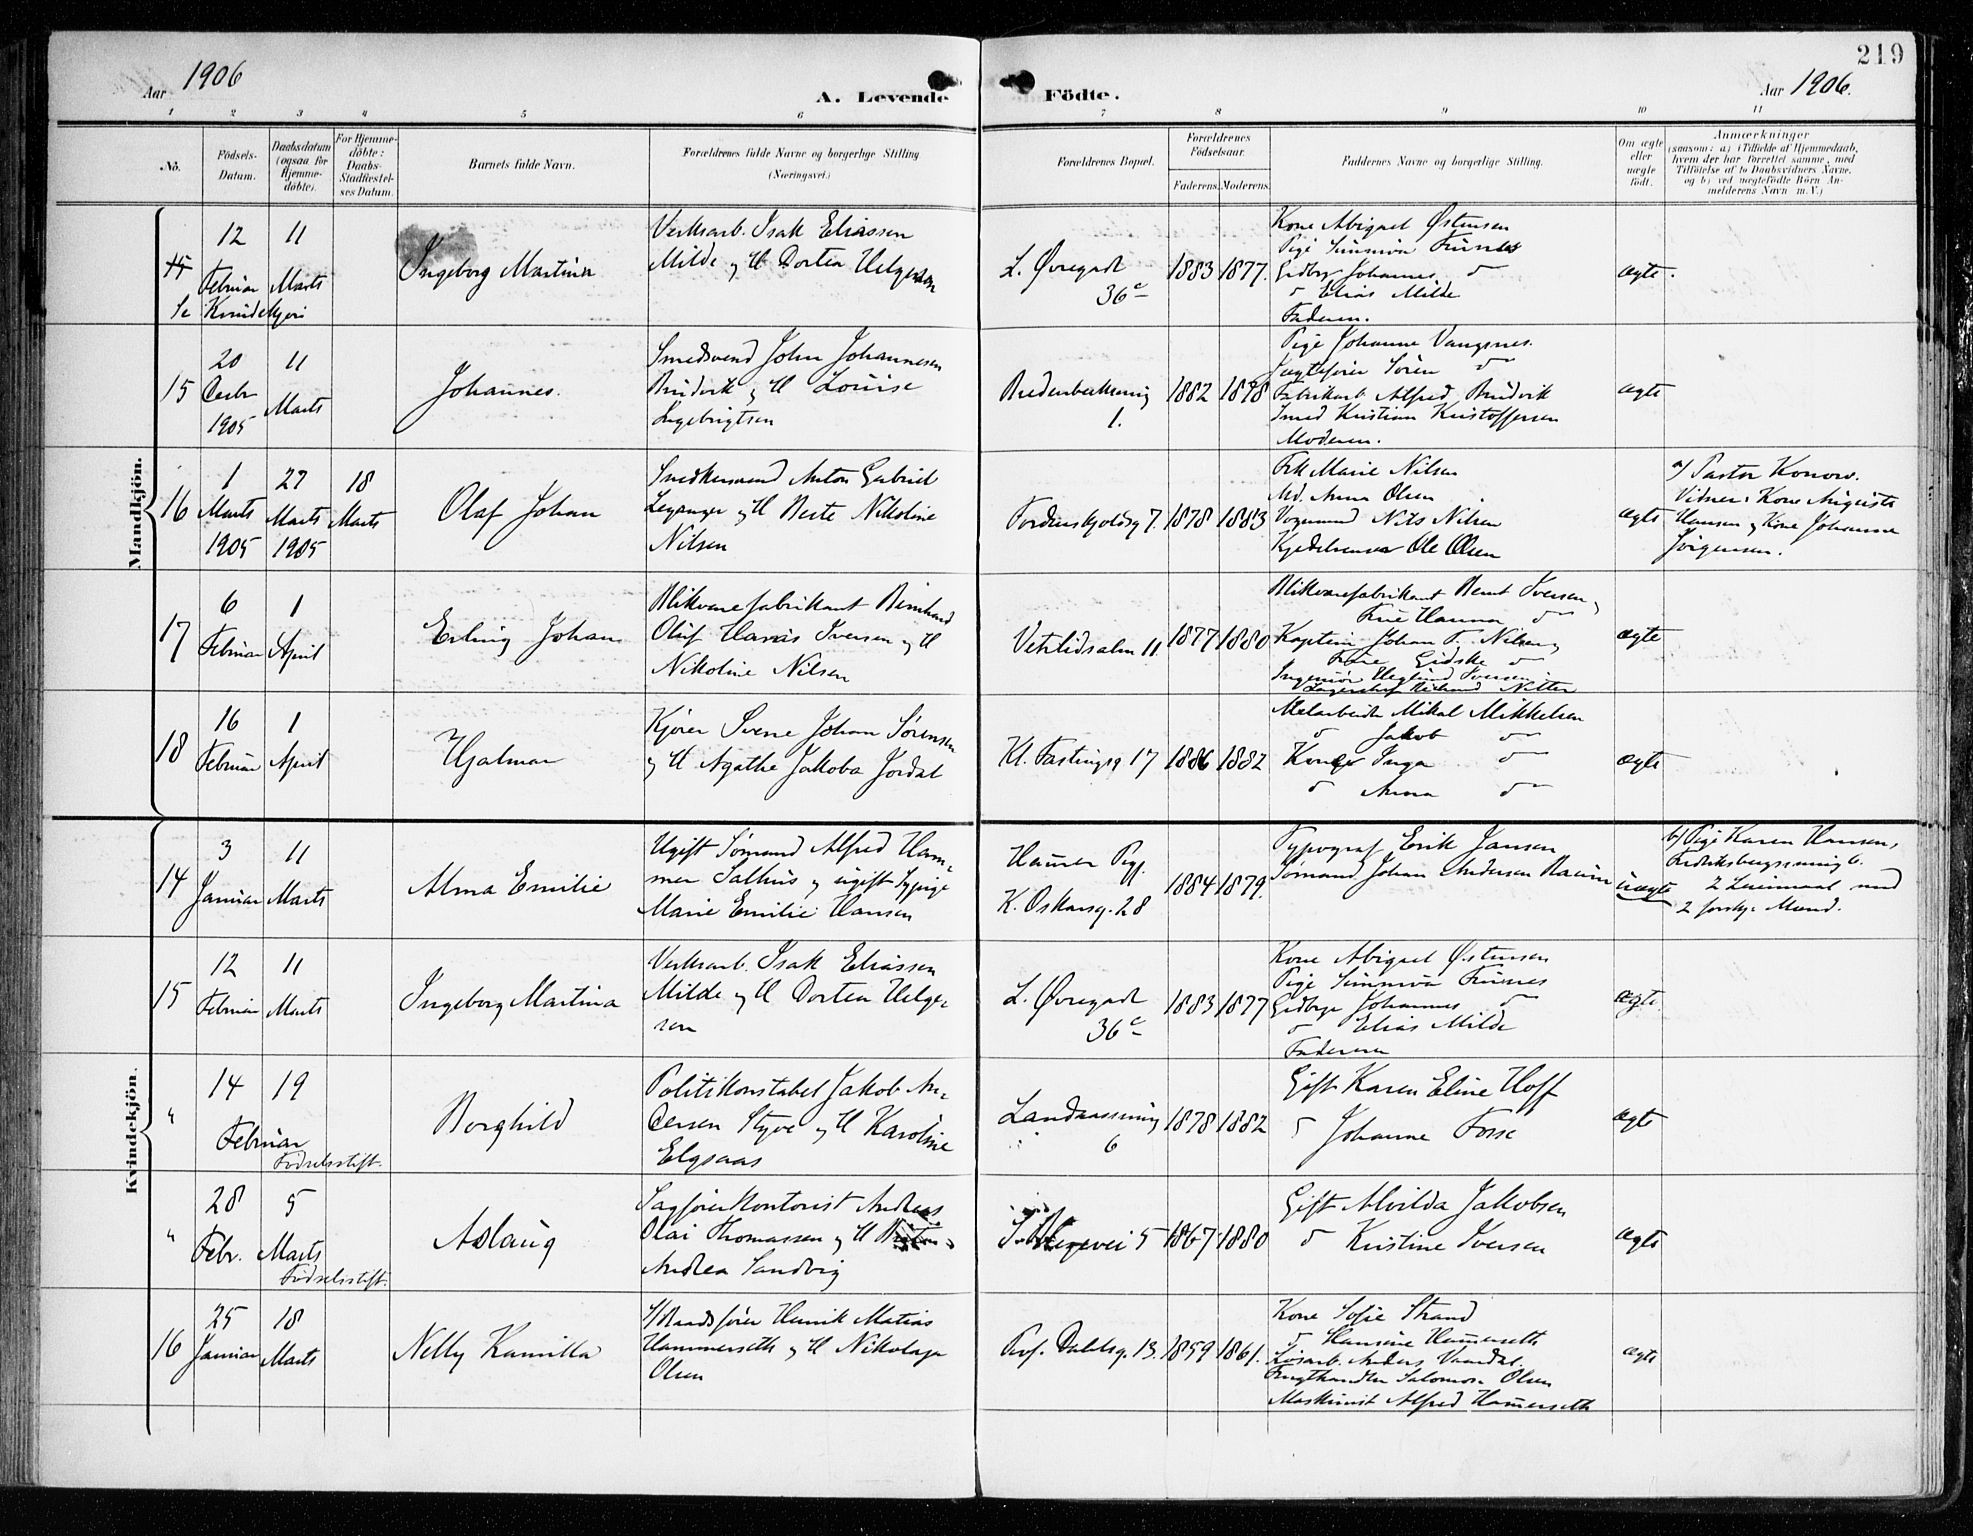 219
Aar 1906
A. Levende Födte.
Aar 1906.
1 2 3 4 5 6 7 8 9 10 11
No.
Födsels-
Datum.
Daabsdatum
(ogsaa for
Hjemme-
döbte).
For Hjemme-
döbte:
Daabs-
Stadfæstel-
ses Datum.
Barnets fulde Navn.
Forældrenes fulde Navne og borgerlige Stilling
(Næringsvei.)
Forældrenes Bopæl.
Forældrenes
Födselsaar.
Faderens. Moderens.
Faddernes Navne og borgerlige Stilling.
Om ægte
eller
uægte
födt.
Anmærkninger
(saasom: a) i Tilfælde af Hjemmedaab,
hvem der har forrettet samme, med
Tilföielse af to Daabsvidners Navne,
og b) ved uægtefödte Börn An-
melderens Navn m. V.)
Mandkjön.
15
Se Kvindekjøn
12
Februar
11
Marts
Ingeborg Martina
Verksarb. Isak Eliassen
Milde og H Dortea Helgesen
L. Øvregade
36c
1883 1877.
Kone Abigael Østensen
Pige Sunniva Furnes
Gudbr. Johannes do
do Elias Milde
Faderen.
ægte.
15
20
Decbr
1905
11
Marts
Johannes.
Smedsvend John Johannesen
Brudvik og H Louise
Ingebrigtsen
Bredenbecksmug
1.
1882 1878
Pige Johanne Vangsnes.
Jægtefører Søren do
Fabrikarb Alfred Brudvik
Smed Kristian Kristoffersen
Moderen.
ægte
16
1
Marts
1905
27
Marts
1905
18
Marts
Olaf Johan
Snedkersvend Anton Gabriel
Leganger og H Berte Nikoline
Nilsen
Tordenskjoldsg 7.
1878 1883
Frk Marie Nilsen
Md. Anna Olsen
Vognmand Nils Nilsen
Kjedelrenser Ole Olsen
ægte
a) Pastor Konow.
Vidner: Kone Augusta
Hansen og Kone Johanne
Jörgensen.
17
6
Februar
1
April
Erling Johan
Blikvarefabrikant Bernhard
Oluf Haraas Iversen og H
Nikoline Nilsen
Vetrlidsalm 11.
1877 1880
Blikvarefabrikant Bernt Iversen,
Frue Hanna do
Kaptein Johan F. Nilsen,
Frue Gidske do
Ingeniør Iversen
Nitter
ægte
18
16
Februar
1
April
Hjalmar
Kjører Svene Johan Sørensen
og H Agathe Jakoba Jordal
Kl. Fastingsg 17
1886 1882
Melarbeider Mikal Mikkelsen
do Jakob do
Kone Inga do
do Anna do
ægte
Kvindekjön.
14
3
Januar
11
Marts
Alma Emilie
Ugift Sømand Alfred Ham-
mer Salhus og ugift Sypige
Marie Emilie Hansen
K. Oskarsg. 28
1884 1879.
Typograf Erik Jansen
Sømand Johan Andersen Raum
uægte
b) Pige Karen Hansen,
Fredriksbergssmug 6.
2 Leiermaal med
2 forskj. Mænd.
15
12
Februar
11
Marts
Ingeborg Martina
Verksarb. Isak Eliassen
Milde og H Dortea Helge-
sen
L. Øvregade
36c
1883 1877
Kone Abigael Østensen
Pige Sunniva Furnes
Gudbr. Johannes do
do Elias Milde
Faderen
ægte.
"
14 19
Februar
Födselsstift.
Borghild
Politikonstabel Jakob An-
dersen Styve og H Karoline
Elgsaas
Landaassmug
6
1878 1882
Gift Karen Eline Hoff
do Johanne Fosse
ægte
"
28
Febr.
5
Marts
Födselsstift.
Aslaug
Sagførerkontorist Andreas
Olai Thomassen og H
Andrea Sandvig
5
1867 1880
Gift Alvilda Jakobsen
do Kristine Iversen
ægte
16
25
Januar
18
Marts
Nelly Kamilla
Henrik Matias
Hammerseth og H Nikolaja
Olsen
Prof. Dahlsg. 13.
1859 1861.
Kone Sofie Strand
do Hansine Hammerseth
Anders Vaardal.
Frugthandler Salomon Olsen
Maskinist Alfred Hammerseth
ægte